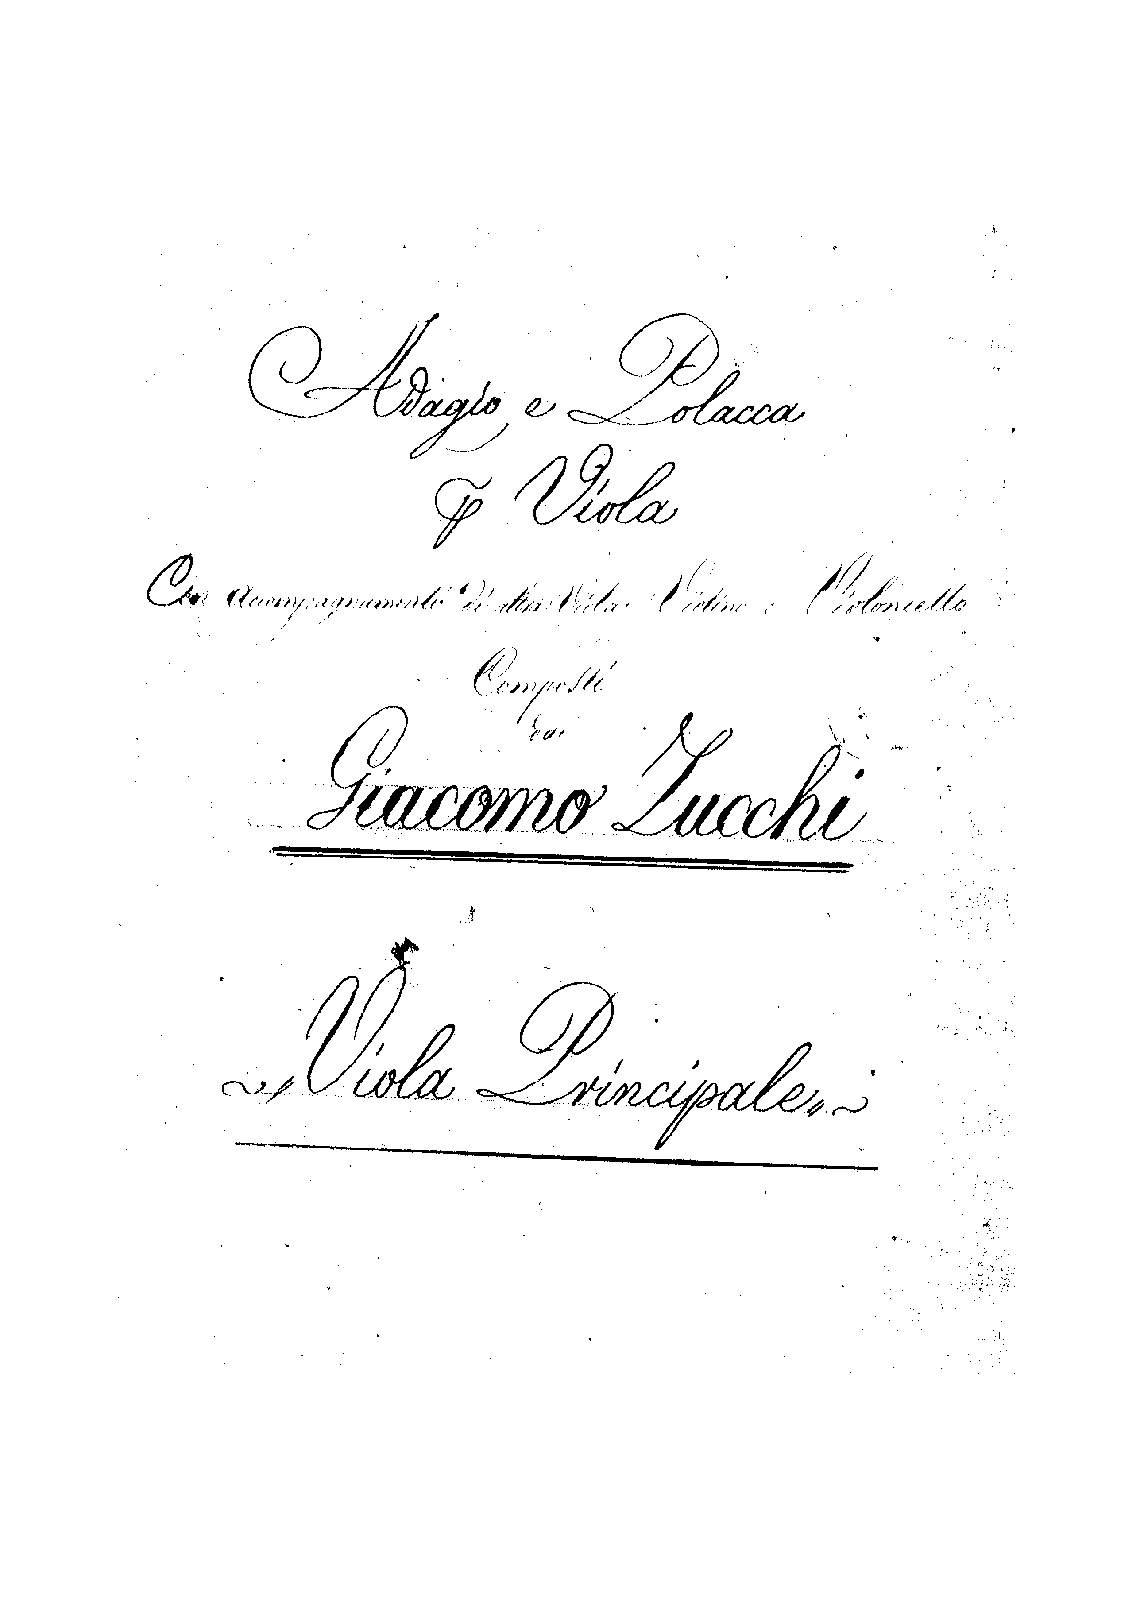 Adagio e Polacca
P Viola
Con acompagnamento di altra Viola Violino e Violoncello
Composti
da
Giacomo Zucchi
Viola Principale